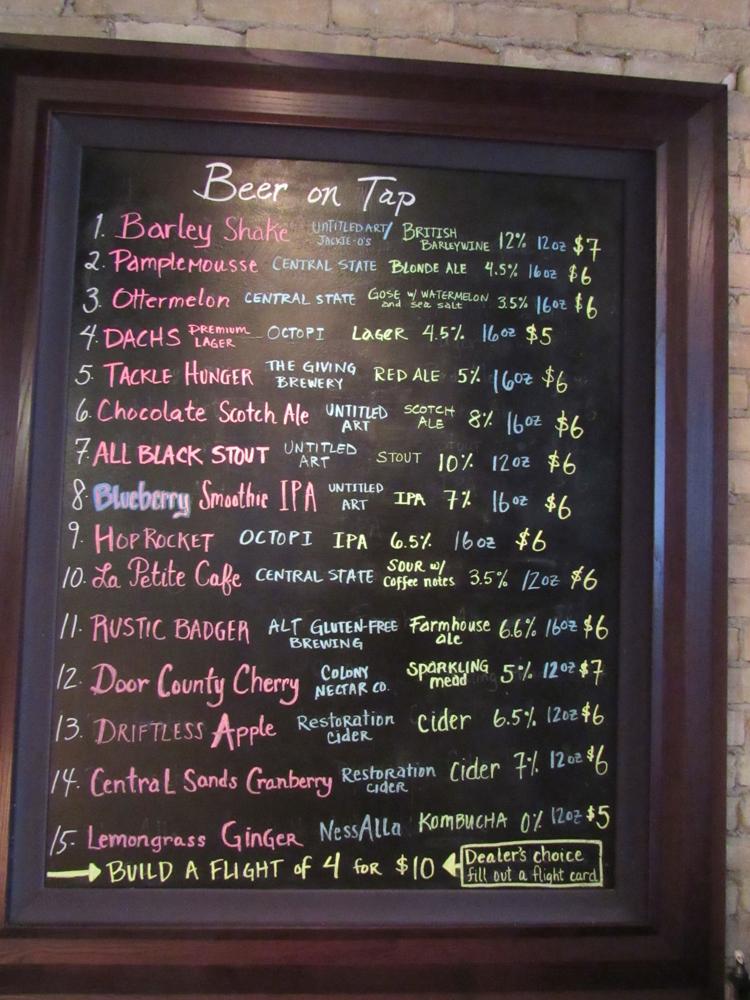 Beer on Tap
1. Barley Shake UNTITLED ART/ JACKIE-O'S BRITISH BARLEYWINE 12% 12oz $7
2. Pamplemousse CENTRAL STATE BLONDE ALE 4.5% 16oz $6
3. Ottermelon CENTRAL STATE GOSE w/ WATERMELON and sea salt 3.5% 16oz $6
4. DACHS PREMIUM LAGER OCTOPI LAGER 4.5% 16oz $5
5. TACKLE HUNGER THE GIVING BREWERY RED ALE 5% 16oz $6
6. Chocolate Scotch Ale UNTITLED ART SCOTCH ALE 8% 16oz $6
7. ALL BLACK STOUT UNTITLED ART STOUT 10% 12oz $6
8. Blueberry Smoothie IPA UNTITLED ART IPA 7% 16oz $6
9. HOP ROCKET OCTOPI IPA 6.5% 16oz $6
10. La Petite Cafe CENTRAL STATE SOUR w/ Coffee notes 3.5% 12oz $6
11. RUSTIC BADGER ALT GLUTEN-FREE BREWING Farmhouse ale 6.6% 16oz $6
12. Door County Cherry COLONY NECTAR CO. SPARKLING mead 5% 12oz $7
13. DRIFTLESS Apple Restoration CIDER Cider 6.5% 12oz $6
14. Central Sands Cranberry Restoration CIDER Cider 7% 12oz $6
15. Lemongrass GINGER NessAlla KOMBUCHA 0% 12oz $5
→ BUILD A FLIGHT of 4 for $10 ← Dealer's choice
fill out a flight card